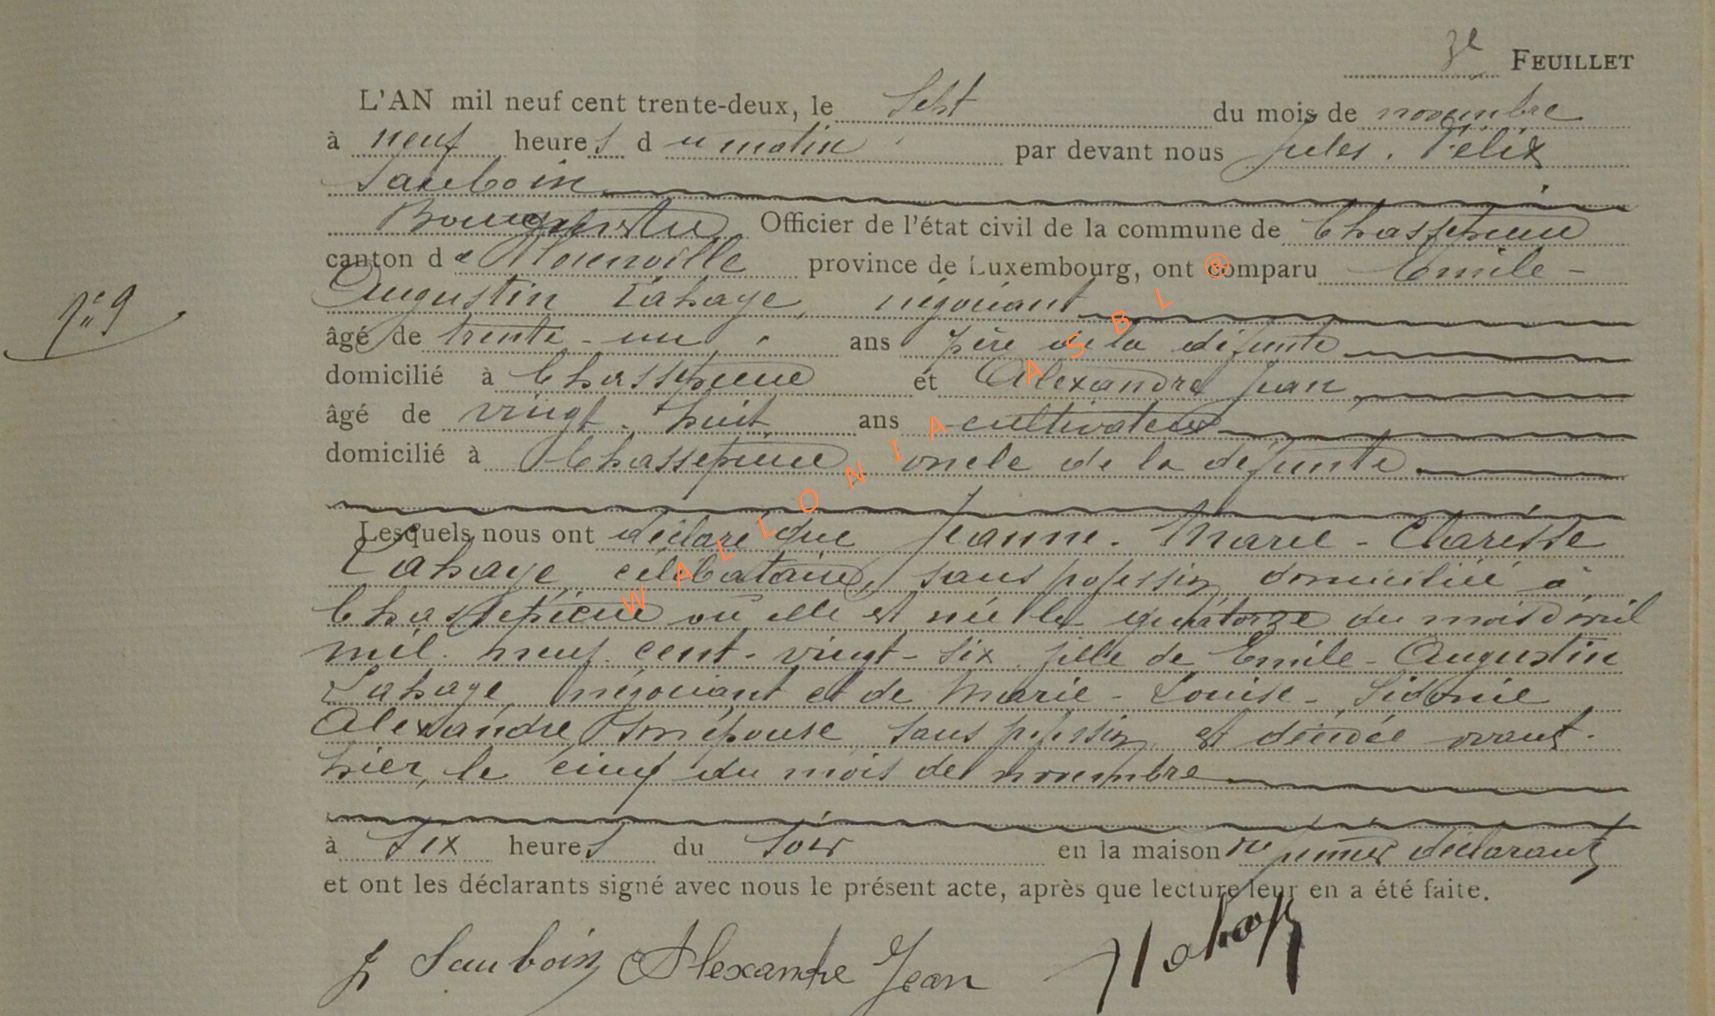 3e FEUILLET
L'AN mil neuf cent trente-deux, le sept du mois de novembre
à neuf heures du matin par devant nous Jules. Félix
Sauboin
Bourgmestre Officier de l'état civil de la commune de Chassepierre
canton de Florenville province de Luxembourg, ont comparu Emile-
Augustin Lahaye, négociant
n° 9
âgé de trente-un ans père de la défunte
domicilié à Chassepierre et Alexandre Jean,
âgé de vingt-huit ans cultivateur
domicilié à Chassepierre oncle de la défunte
Lesquels nous ont déclaré que Jeanne-Marie-Clarisse
Lahaye, célibataire, sans profession domiciliée à
Chassepierre où elle est née le quatorze du mois d'avril
mil neuf cent-vingt-six fille de Emile-Augustin
Lahaye négociant et de Marie-Louise-Sidonie
Alexandre son épouse sans profession, est décédée avant-
hier, le cinq du mois de novembre
à six heures du soir en la maison du premier déclarant
et ont les déclarants signé avec nous le présent acte, après que lecture leur en a été faite.
J. Sauboin Alexandre Jean Lahaye
WALLONIA ASBL ®